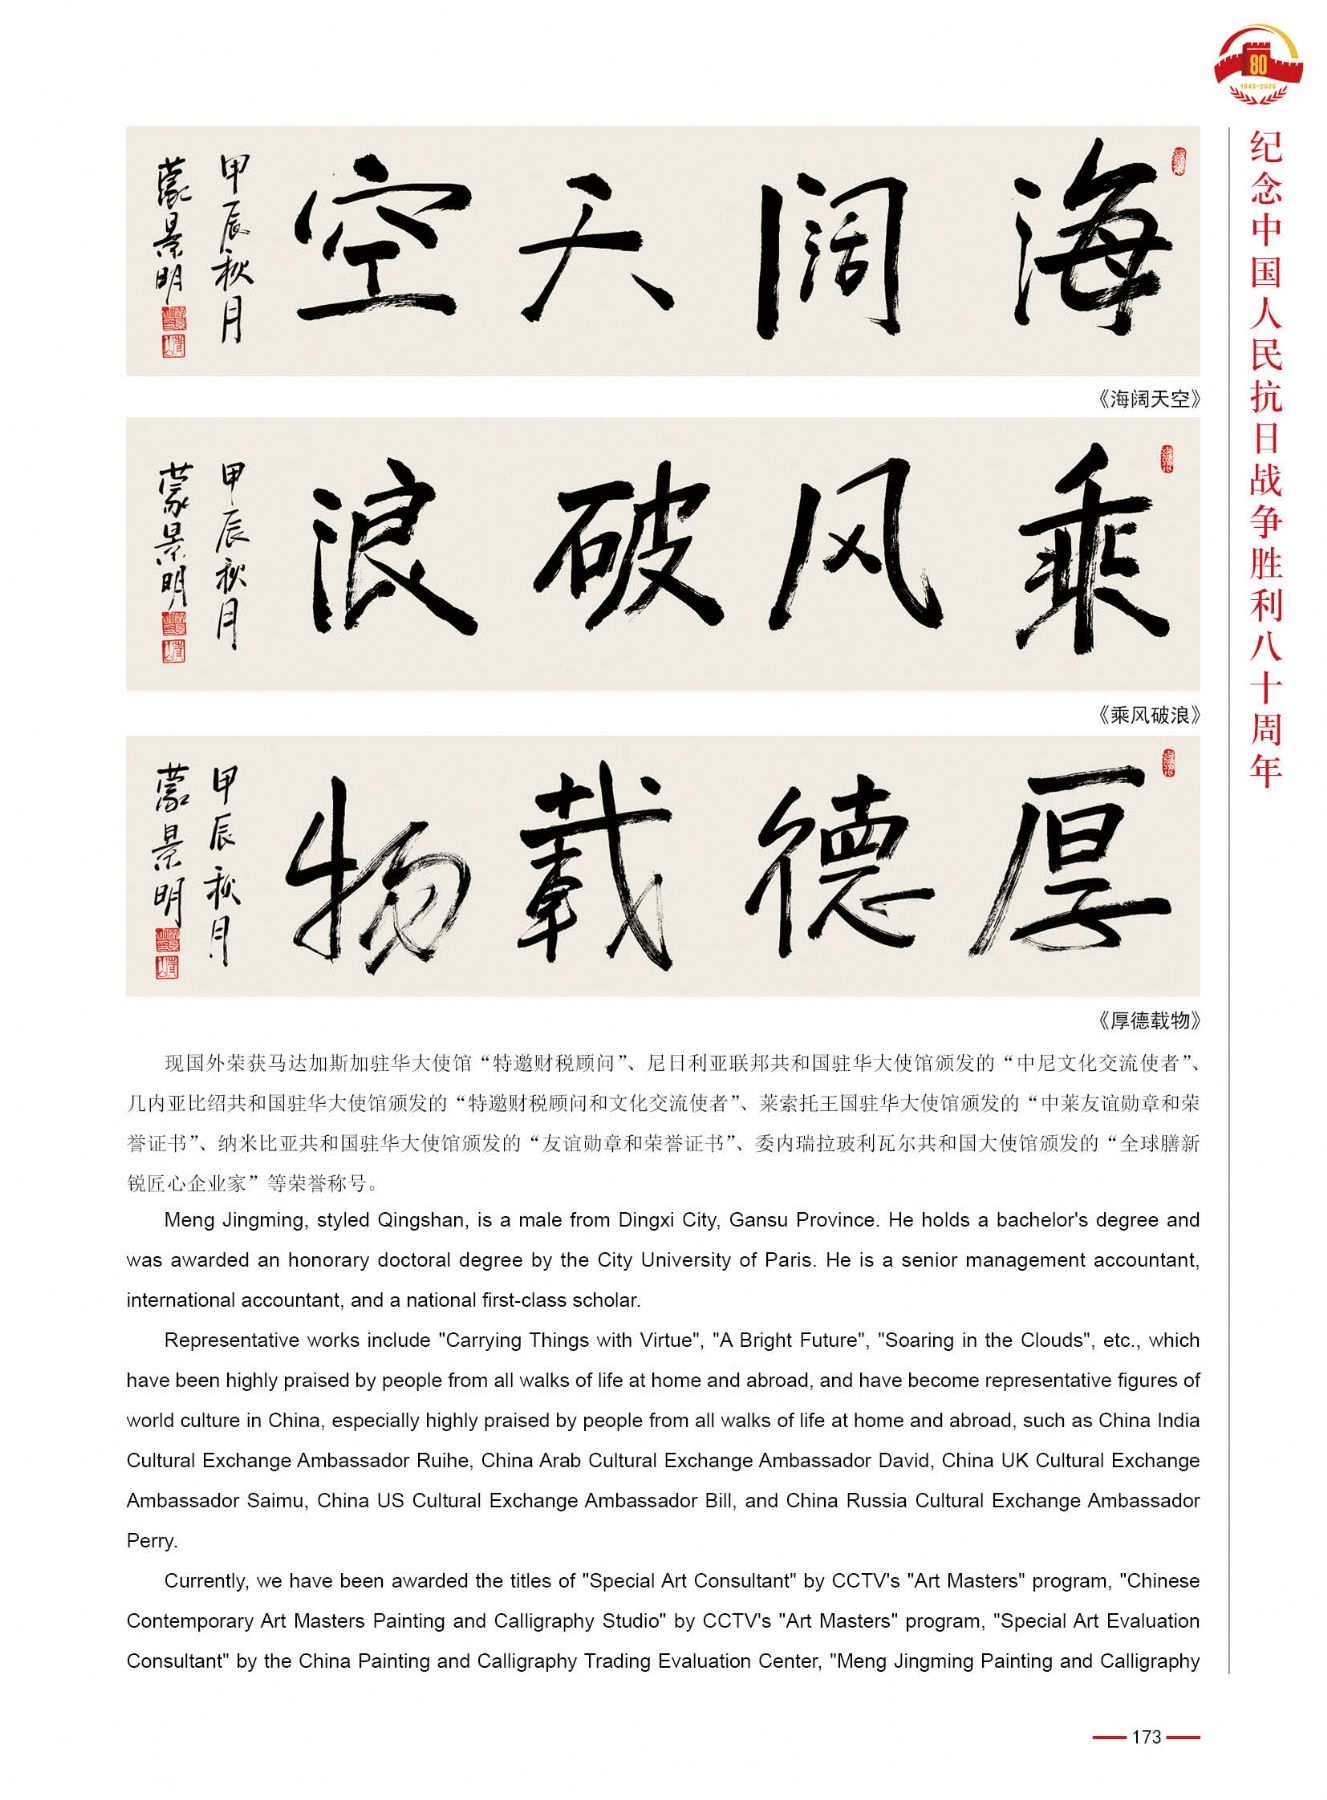 80
1945-2025
纪念中国人民抗日战争胜利八十周年
海阔天空
甲辰秋月
蒙景明
《海阔天空》
乘风破浪
甲辰秋月
蒙景明
《乘风破浪》
厚德载物
甲辰秋月
蒙景明
《厚德载物》
现国外荣获马达加斯加驻华大使馆“特邀财税顾问”、尼日利亚联邦共和国驻华大使馆颁发的“中尼文化交流使者”、
几内亚比绍共和国驻华大使馆颁发的“特邀财税顾问和文化交流使者”、莱索托王国驻华大使馆颁发的“中莱友谊勋章和荣
誉证书”、纳米比亚共和国驻华大使馆颁发的“友谊勋章和荣誉证书”、委内瑞拉玻利瓦尔共和国大使馆颁发的“全球膳新
锐匠心企业家”等荣誉称号。
Meng Jingming, styled Qingshan, is a male from Dingxi City, Gansu Province. He holds a bachelor's degree and
was awarded an honorary doctoral degree by the City University of Paris. He is a senior management accountant,
international accountant, and a national first-class scholar.
Representative works include "Carrying Things with Virtue", "A Bright Future", "Soaring in the Clouds", etc., which
have been highly praised by people from all walks of life at home and abroad, and have become representative figures of
world culture in China, especially highly praised by people from all walks of life at home and abroad, such as China India
Cultural Exchange Ambassador Ruihe, China Arab Cultural Exchange Ambassador David, China UK Cultural Exchange
Ambassador Saimu, China US Cultural Exchange Ambassador Bill, and China Russia Cultural Exchange Ambassador
Perry.
Currently, we have been awarded the titles of "Special Art Consultant" by CCTV's "Art Masters" program, "Chinese
Contemporary Art Masters Painting and Calligraphy Studio" by CCTV's "Art Masters" program, "Special Art Evaluation
Consultant" by the China Painting and Calligraphy Trading Evaluation Center, "Meng Jingming Painting and Calligraphy
173